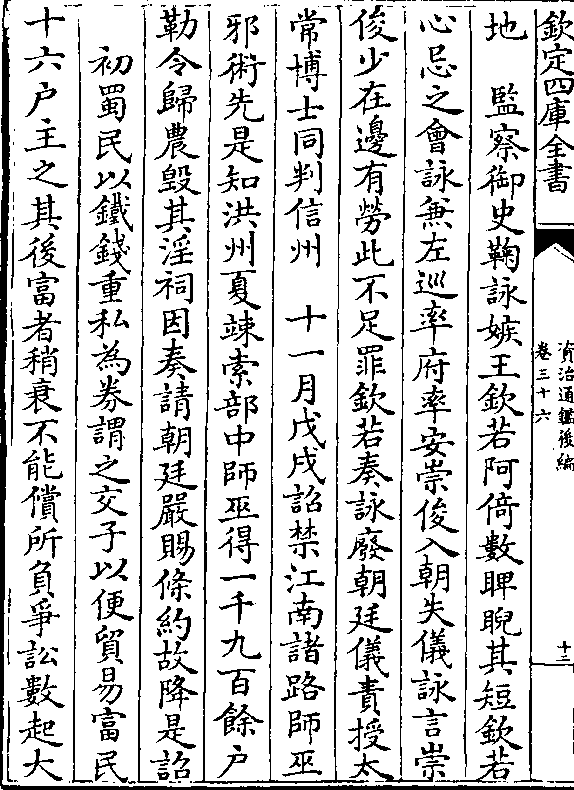 欽定四庫全書
資治通鑑後編
卷三十六
十三
地　監察御史鞠詠嫉王欽若阿倚數睥睨其短欽若
心忌之會詠兼左巡率府率安崇俊入朝失儀詠言崇
俊少在邊有勞此不足罪欽若奏詠廢朝廷儀責授太
常博士同判信州　十一月戊戌詔禁江南諸路師巫
邪術先是知洪州夏竦索部中師巫得一千九百餘户
勒令歸農毀其淫祠因奏請朝廷嚴賜條約故降是詔
初蜀民以鐵錢重私為券謂之交子以便貿易富民
十六户主之其後富者稍衰不能償所負爭訟數起大